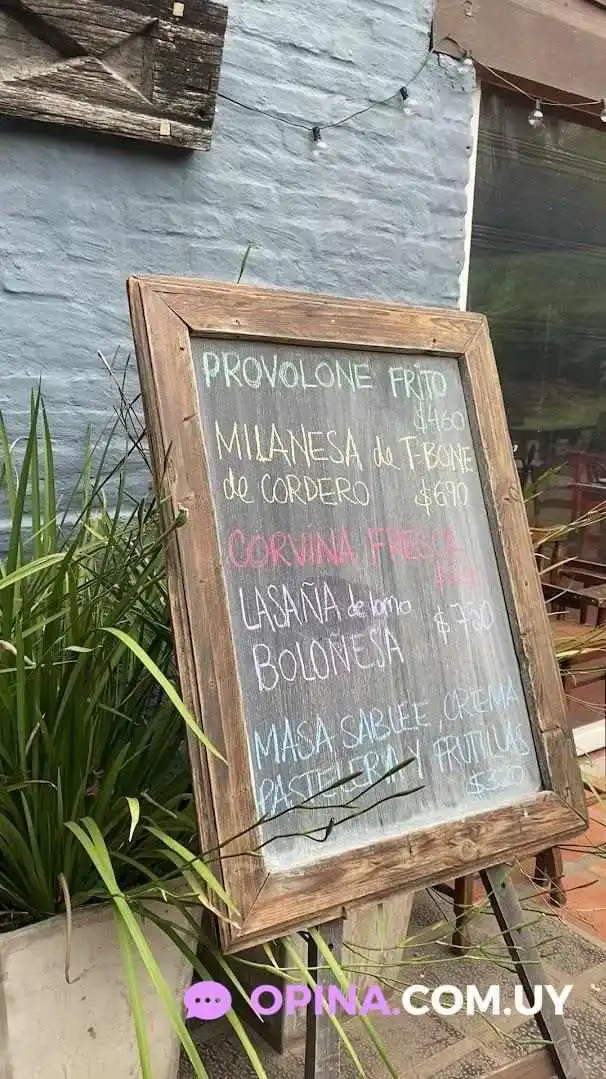 PROVOLONE FRITO
$460
MILANESA de T-BONE
de CORDERO $690
CORVINA FRESCA
LASAÑA de lomo
BOLOÑESA $750
MASA SABLEE, CREMA
PASTELERA Y FRUTILLAS
OPINA.COM.UY